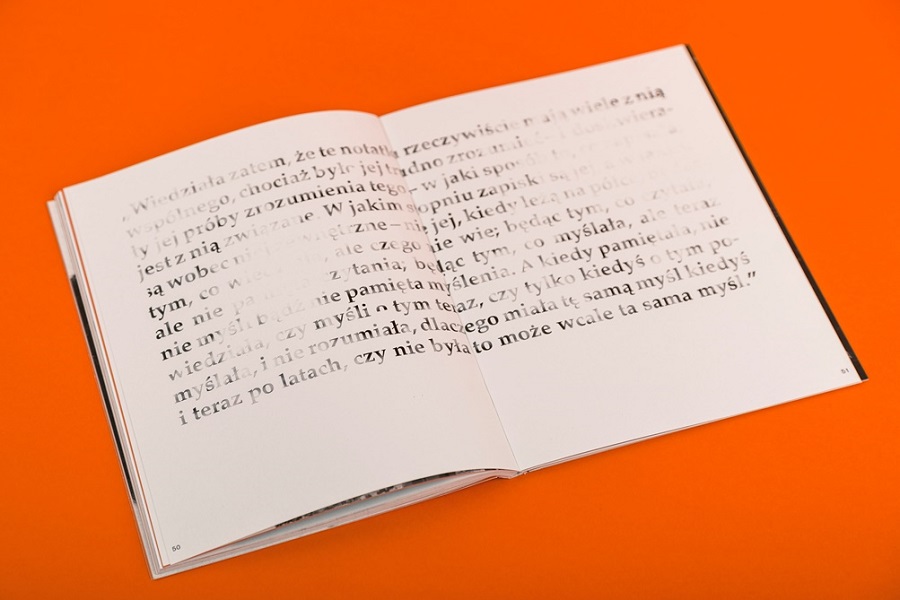 „Wiedziała zatem, że te notatki rzeczywiście mają wiele z nią
wspólnego, chociaż było jej trudno doskwiera-
ły jej próby zrozumienia tego – w jaki sposób to,
jest z nią związane. W jakim stopniu zapiski są jej, a w
są wobec niej zewnętrzne – nie jej, kiedy leżą na
tym, co ale czego nie wie; będąc tym, co czytała,
ale nie czytania; będąc tym, co myślała, ale teraz
nie myśli bądź nie pamięta myślenia. A kiedy pamiętała, nie
wiedziała, czy myśli o tym teraz, czy tylko kiedyś o tym po-
myślała, i nie rozumiała, dlaczego miała tę samą myśl kiedyś
i teraz po latach, czy nie była to może wcale ta sama myśl.”
50
51